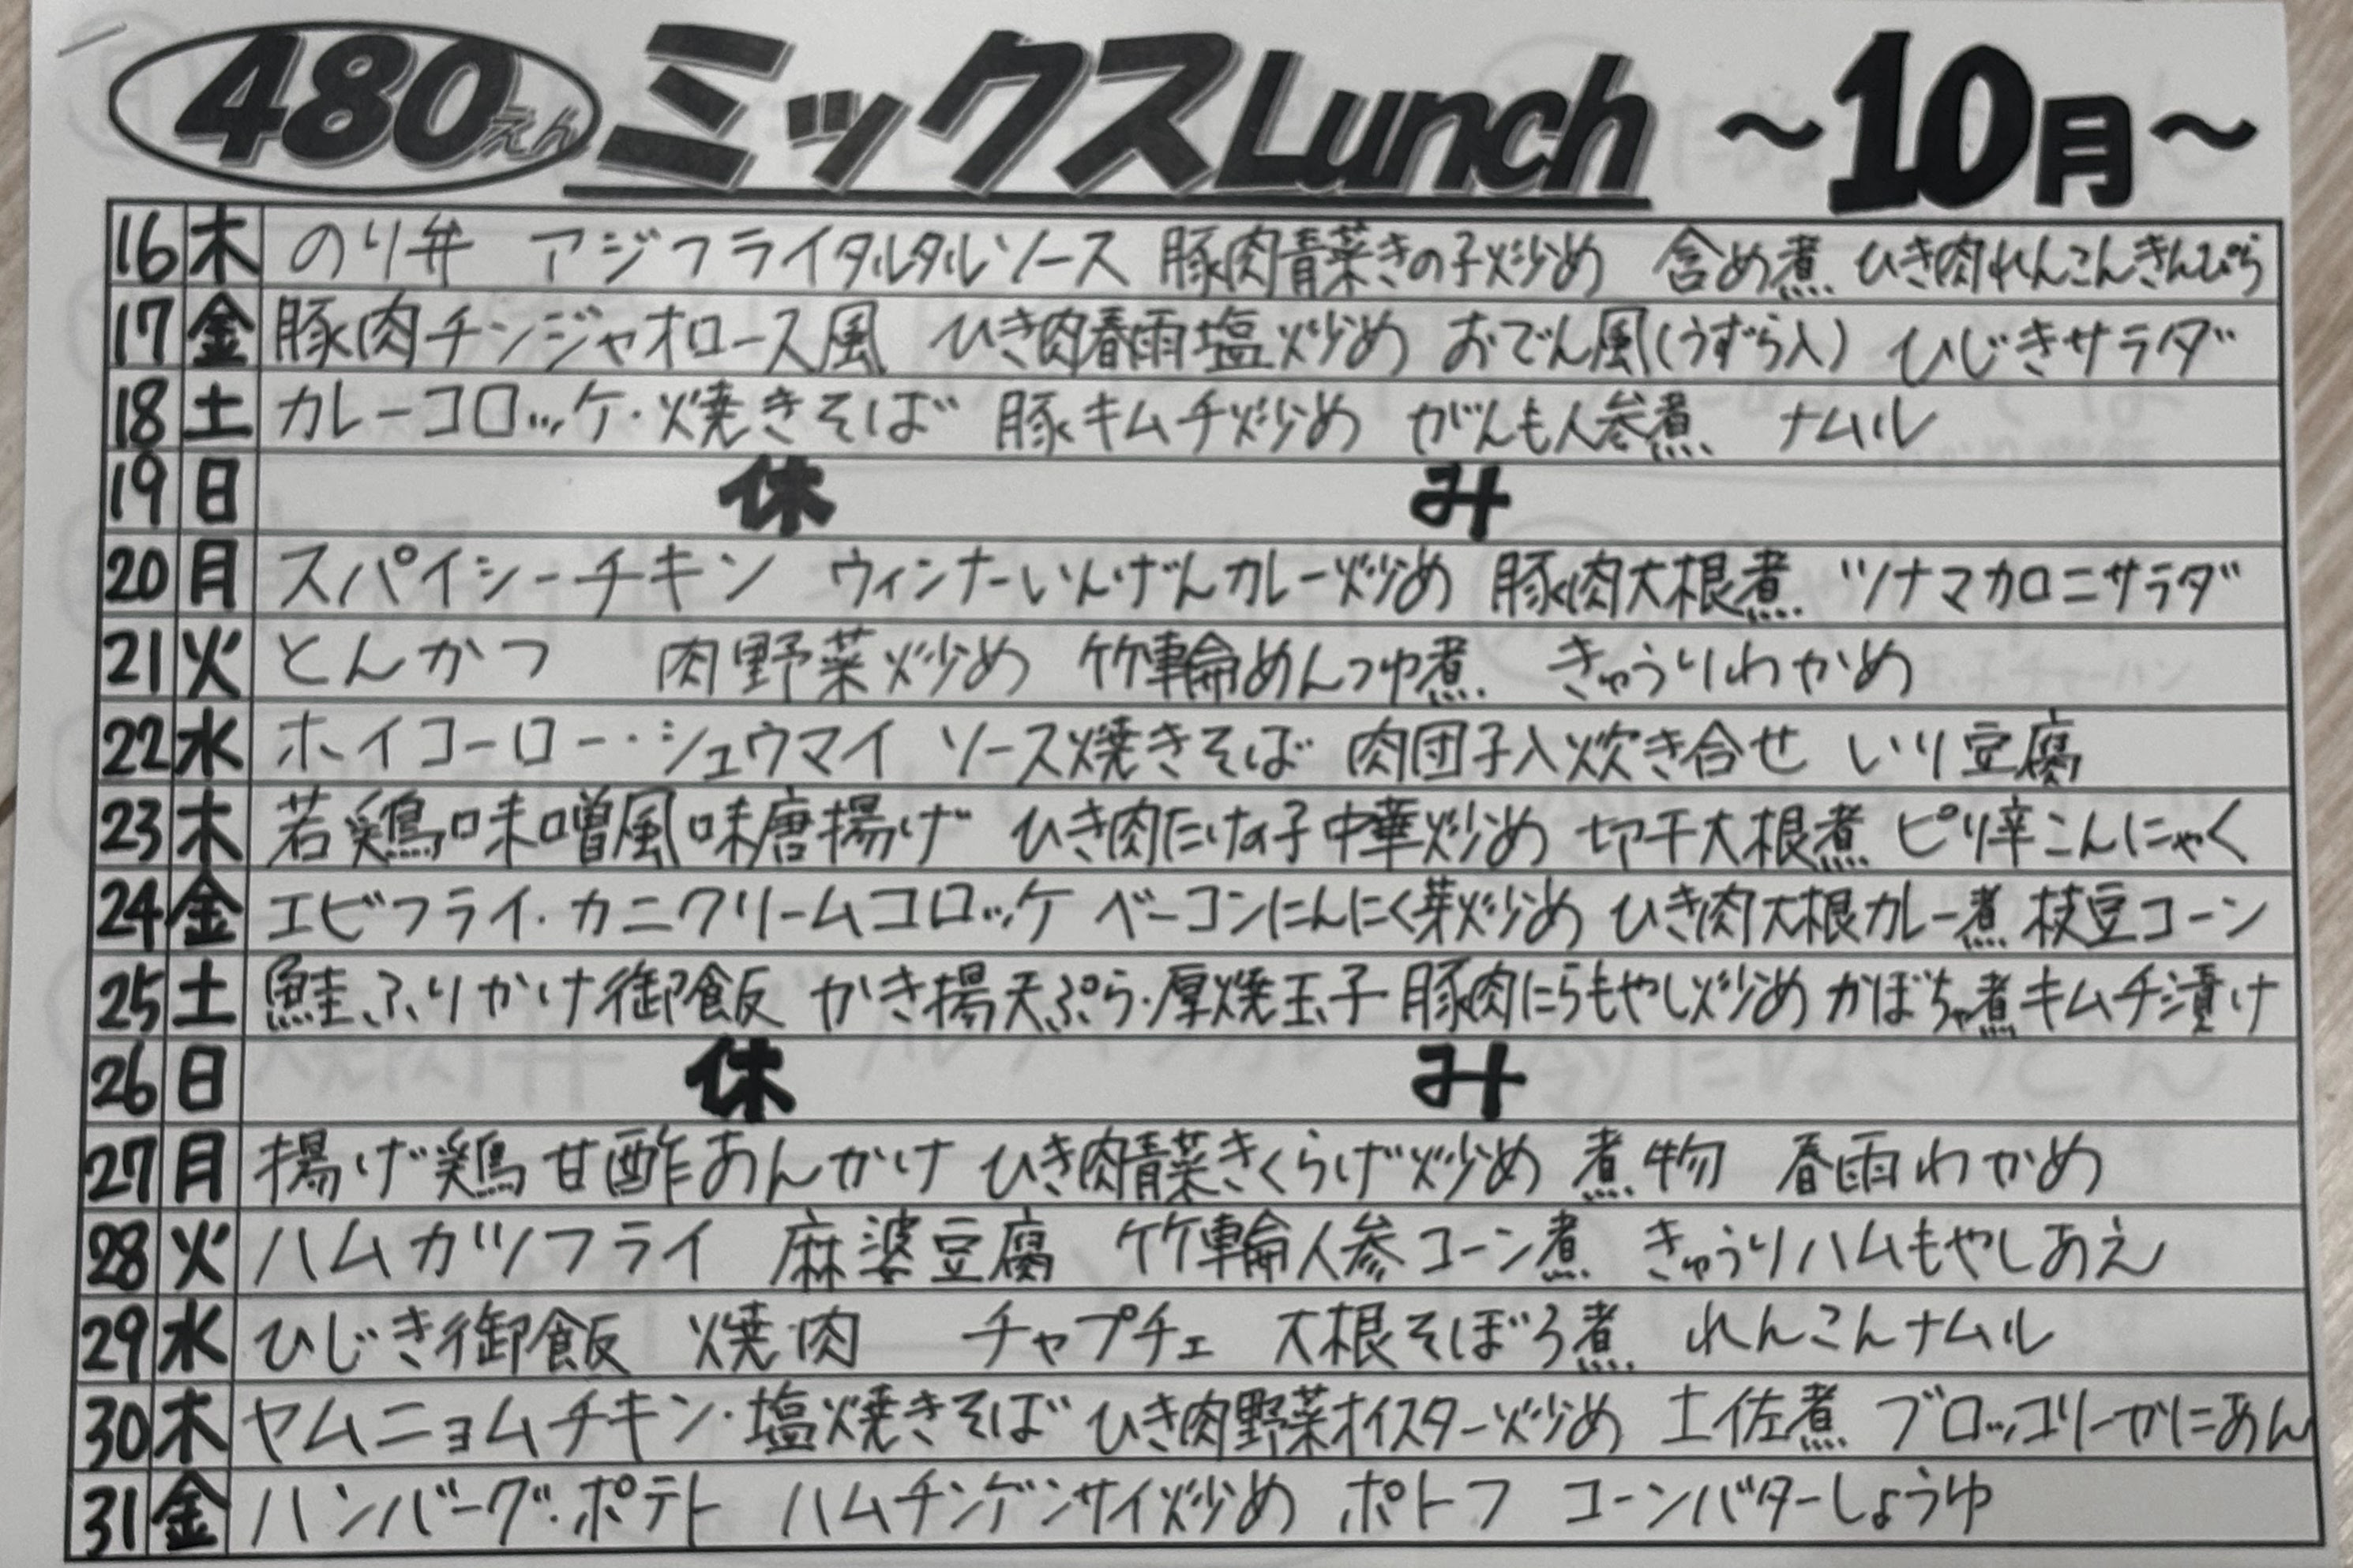 480えん ミックスLunch ～10月～
16 木 のり弁 アジフライタルタルソース 豚肉青菜きの子炒め 含め煮 ひき肉れんこんきんぴら
17 金 豚肉チンジャオロース風 ひき肉春雨塩炒め おでん風(うずら入) ひじきサラダ
18 土 カレーコロッケ・焼きそば 豚キムチ炒め がんも人参煮 ナムル
19 日 休み
20 月 スパイシーチキン ウィンナーいんげんカレー炒め 豚肉大根煮 ツナマカロニサラダ
21 火 とんかつ 肉野菜炒め 竹輪めんつゆ煮 きゅうりわかめ
22 水 ホイコーロー・シュウマイ ソース焼きそば 肉団子入炊き合せ いり豆腐
23 木 若鶏味噌風味唐揚げ ひき肉たけの子中華炒め 切干大根煮 ピリ辛こんにゃく
24 金 エビフライ・カニクリームコロッケ ベーコンにんにく芽炒め ひき肉大根カレー煮 枝豆コーン
25 土 鮭ふりかけ御飯 かき揚天ぷら・厚焼玉子 豚肉にらもやし炒め かぼちゃ煮 キムチ漬け
26 日 休み
27 月 揚げ鶏甘酢あんかけ ひき肉青菜きくらげ炒め 煮物 春雨わかめ
28 火 ハムカツフライ 麻婆豆腐 竹輪人参コーン煮 きゅうりハムもやしあえ
29 水 ひじき御飯 焼肉 チャプチェ 大根そぼろ煮 れんこんナムル
30 木 ヤムニョムチキン・塩焼きそば ひき肉野菜オイスター炒め 土佐煮 ブロッコリーかにあん
31 金 ハンバーグ・ポテト ハムチンゲンサイ炒め ポトフ コーンバターしょうゆ